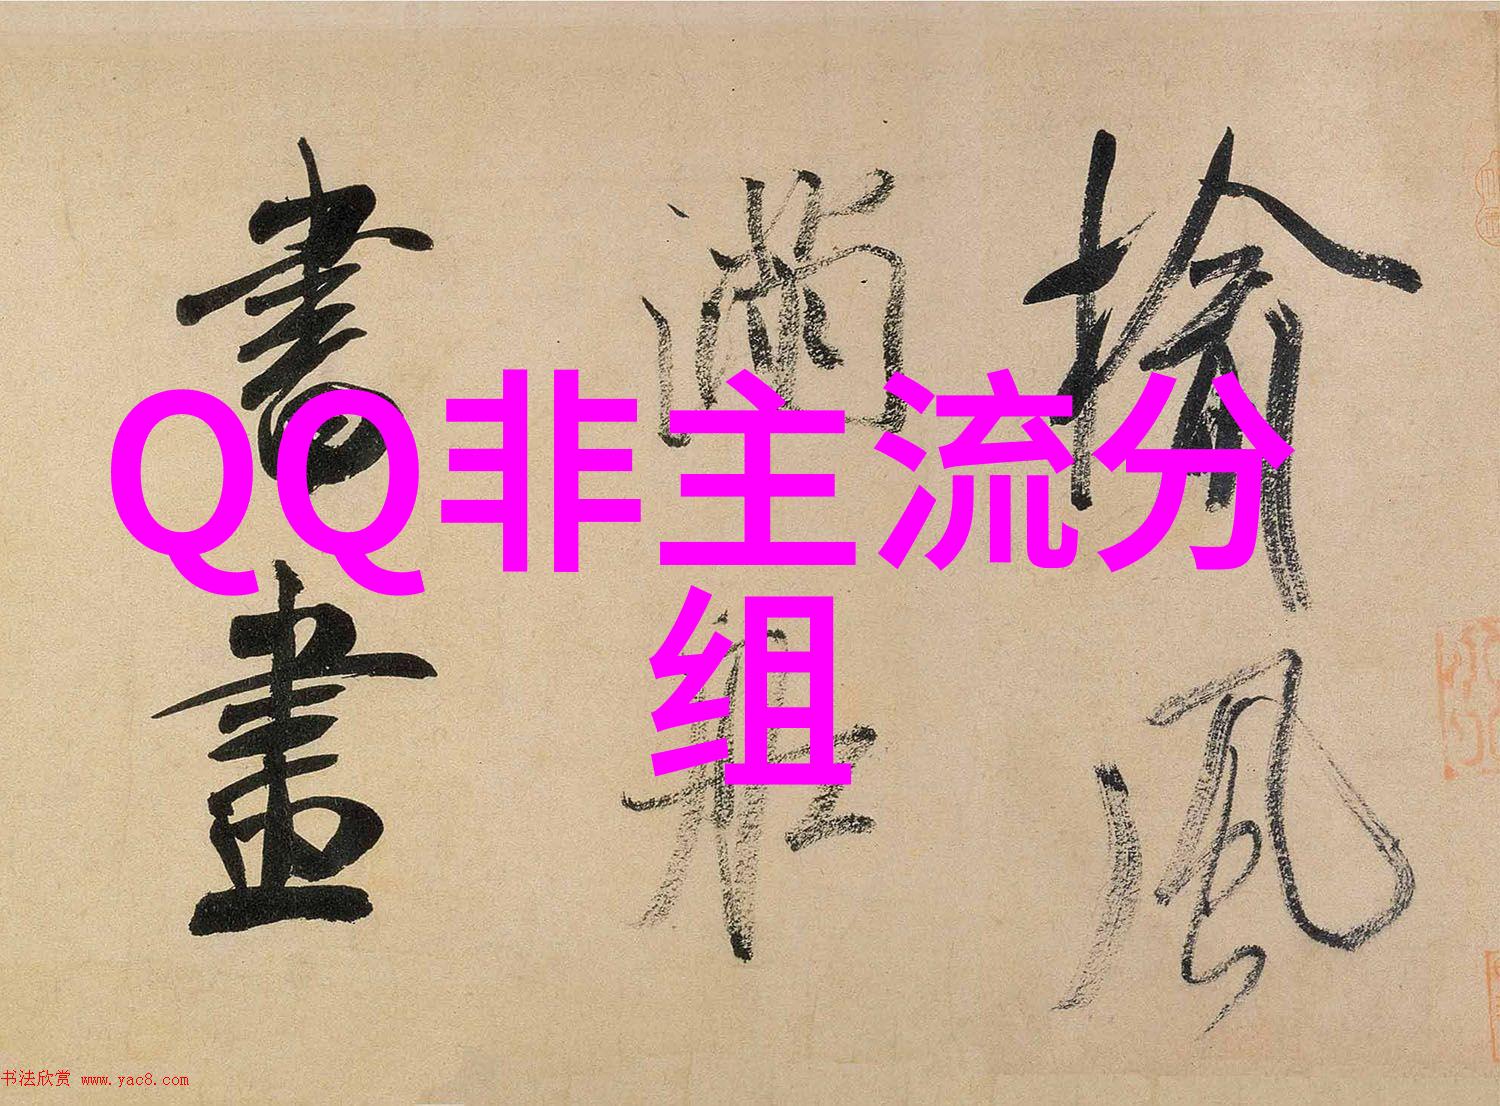 QQ非主流分
组
榆風
滿舡
書畫
书法欣赏 www.yac8.com